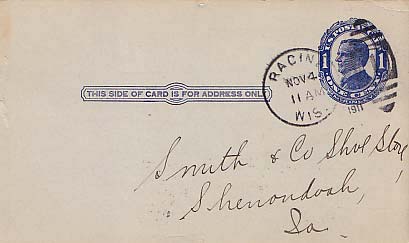 U.S. POSTAL
1 1
ONE CENT
RACINE
NOV 4
11 AM
1911
WIS.
THIS SIDE OF CARD IS FOR ADDRESS ONLY
Smith & Co Shoe Store,
Shenandoah,
Ia.